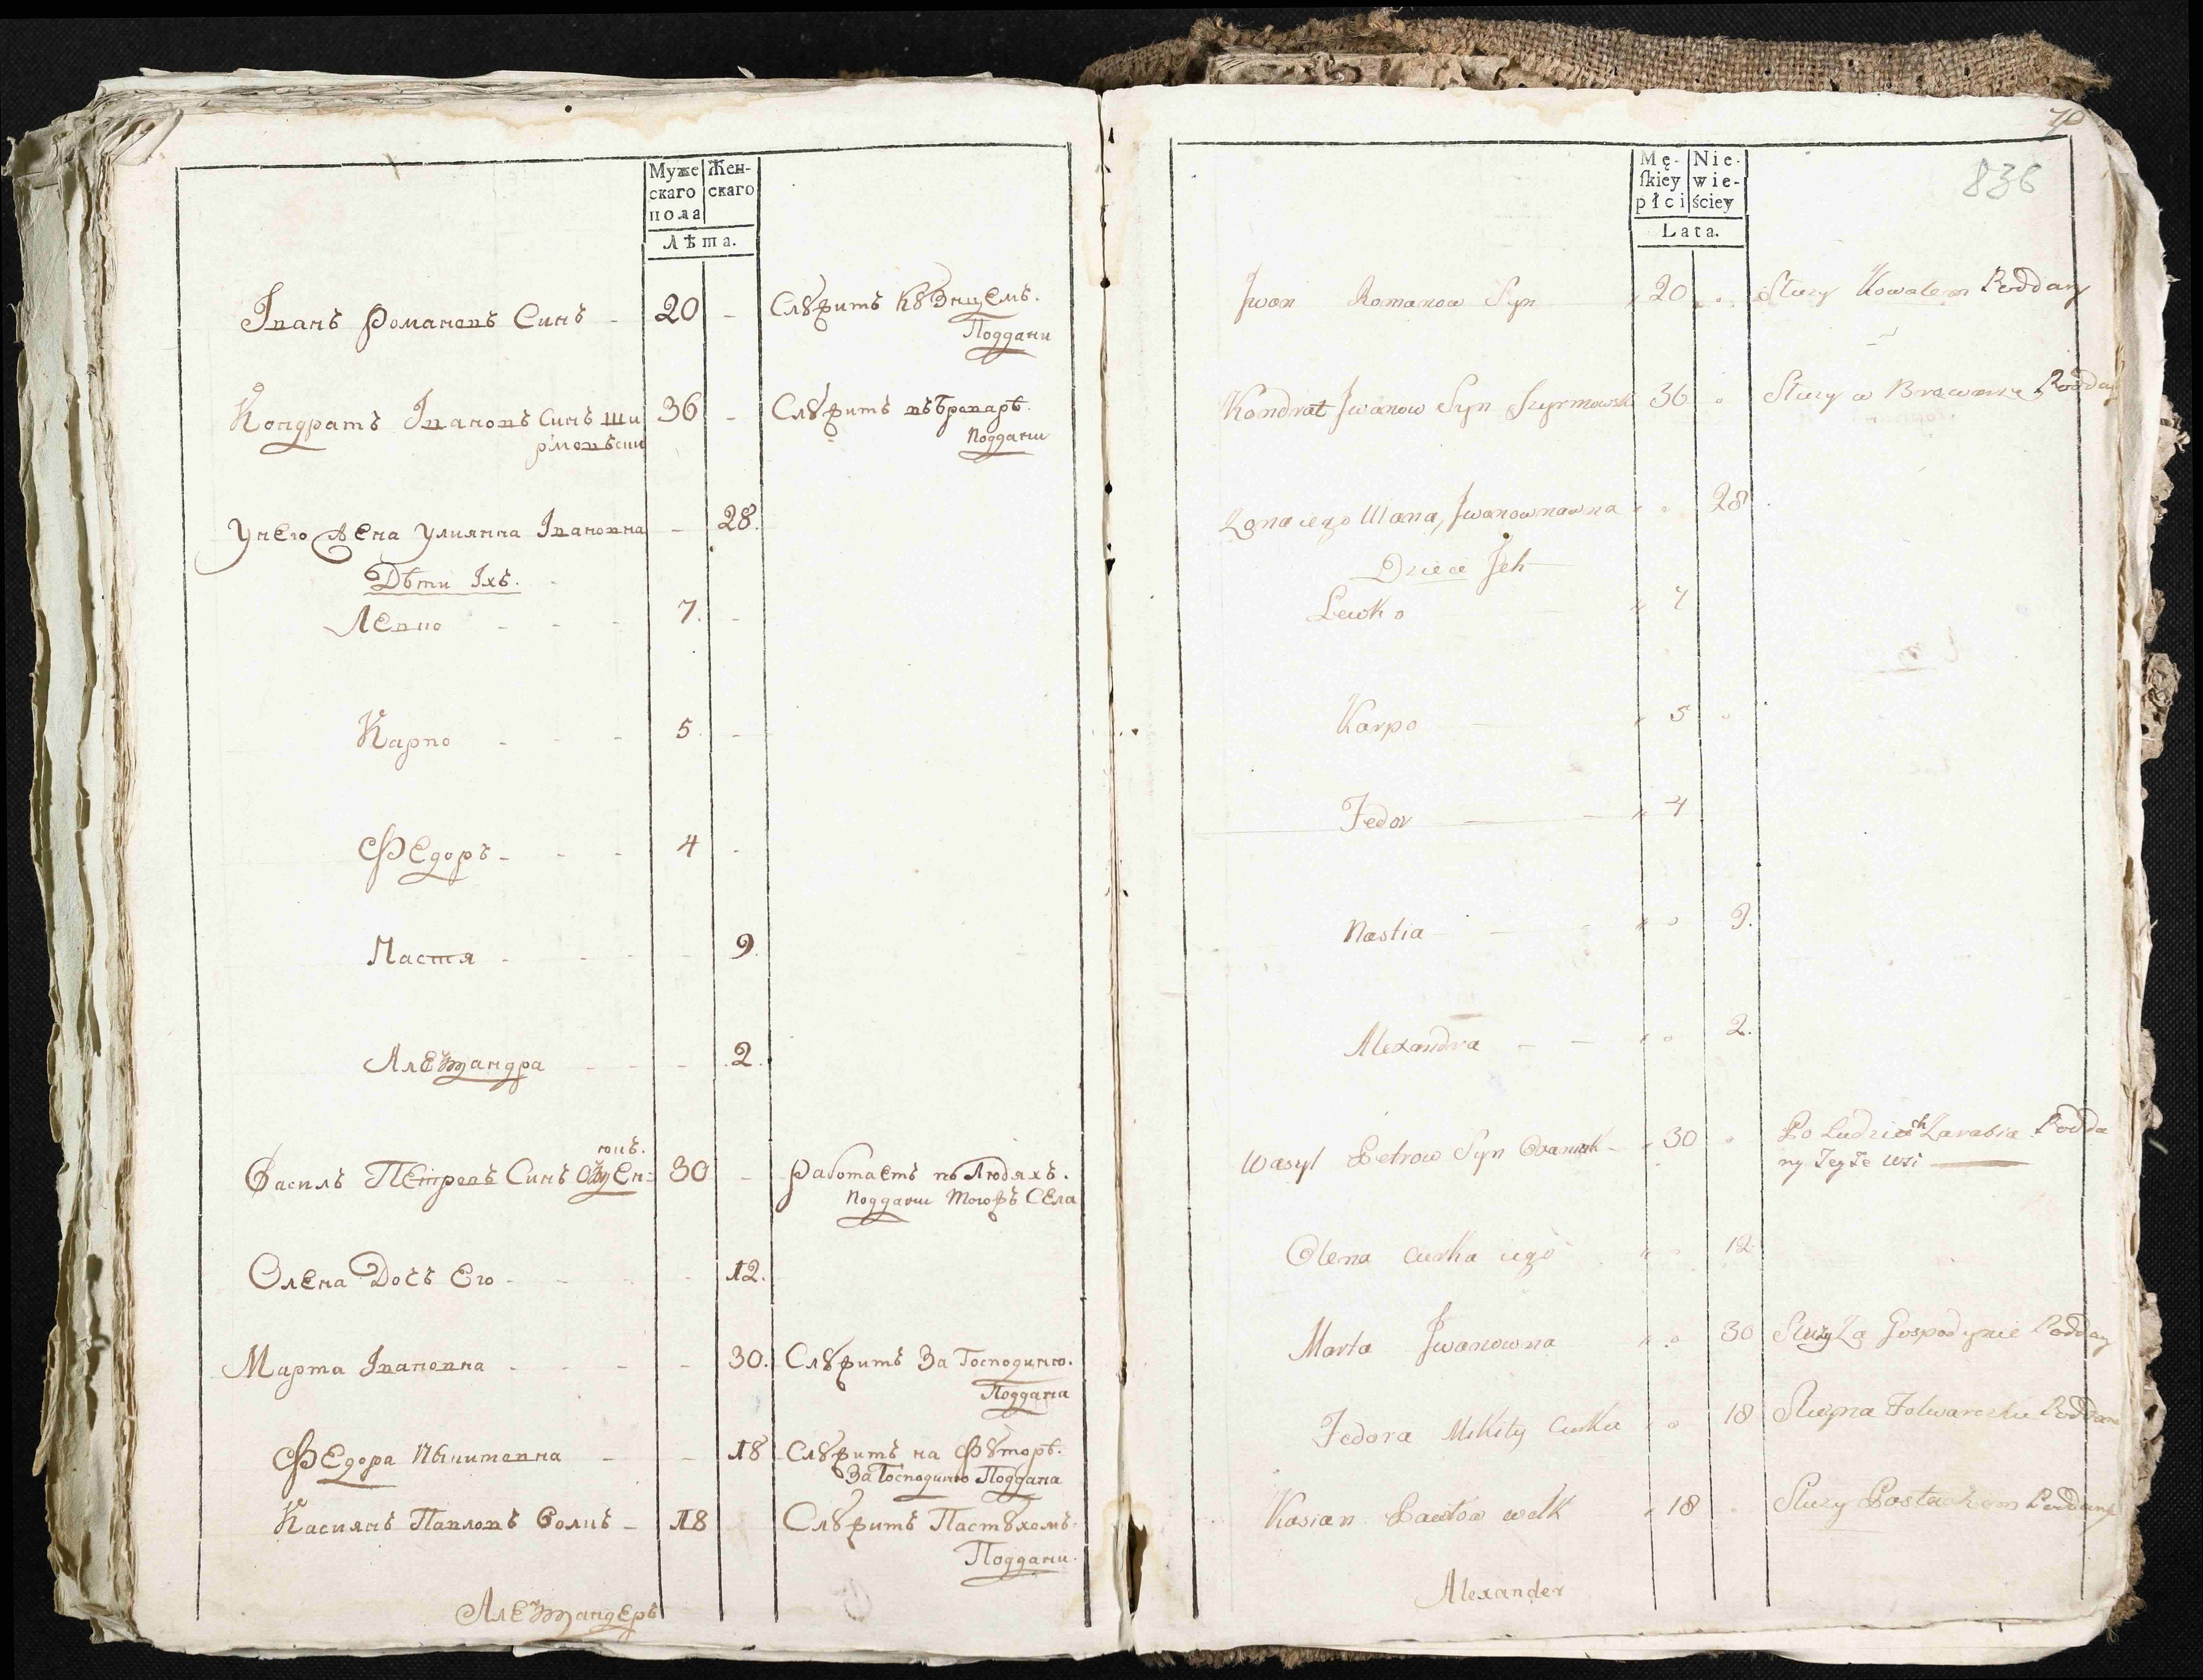 Муже Жен-
скаго скаго
пола
Лѣта.
Іванъ Романовъ Синъ - 20 - Слꙋжитъ Кꙋзнцемъ.
Поддани
Кондратъ Івановъ Синъ Ши 36 - Слꙋжитъ въ Броварѣ.
рмовъски Поддани
У него Жена Улиянна Івановна - 28.
Дѣти Іхъ.
Левко - - - 7. -
Карпо - - - 5. -
Федоръ - - - 4 -
Настя - - - - 9.
Алеѯандра - - - 2.
Василъ Петровъ Синъ 30 - Работаетъ по Людяхъ.
Поддани Тогожъ Села
Олена Дочъ Его - - - 12.
Марта Івановна - - - - 30. Слꙋжитъ За Господиню.
Поддана
Федора Микитовна - - 18 Слꙋжитъ на Фꙋторѣ.
За Господиню Поддана
Касиянъ Павловъ Волкъ - 18 Слꙋжитъ Пастꙋхомъ.
Поддани.
Алеѯандеръ
70
836
Mę- Nie-
ſkiey wie-
płci ściey
Lata.
Jwan Romanow Syn 20 Słuzy Kowalem Poddany
Kondrat Jwanow Syn Szyrmowski 36 Słuzy w Browarze Poddany
Zona iego Ulana, Jwanownawna 28
Dzieci Jch
Lewko 7
Karpo 5
Fedor 4
Nastia 9.
Alexandra 2.
Wasyl Petrow Syn 30 Po Ludziach Zarabia Podda
ny Teyże Wsi
Olena Curka iego 12
Marta Jwanowna 30 Słuzy Za Gospodynie Poddany
Fedora Mikity Curka 18 Słuzy na Folwarczku Poddana
Kasian Pawłow Wołk 18 Słuzy Pastuchem Poddany
Alexander